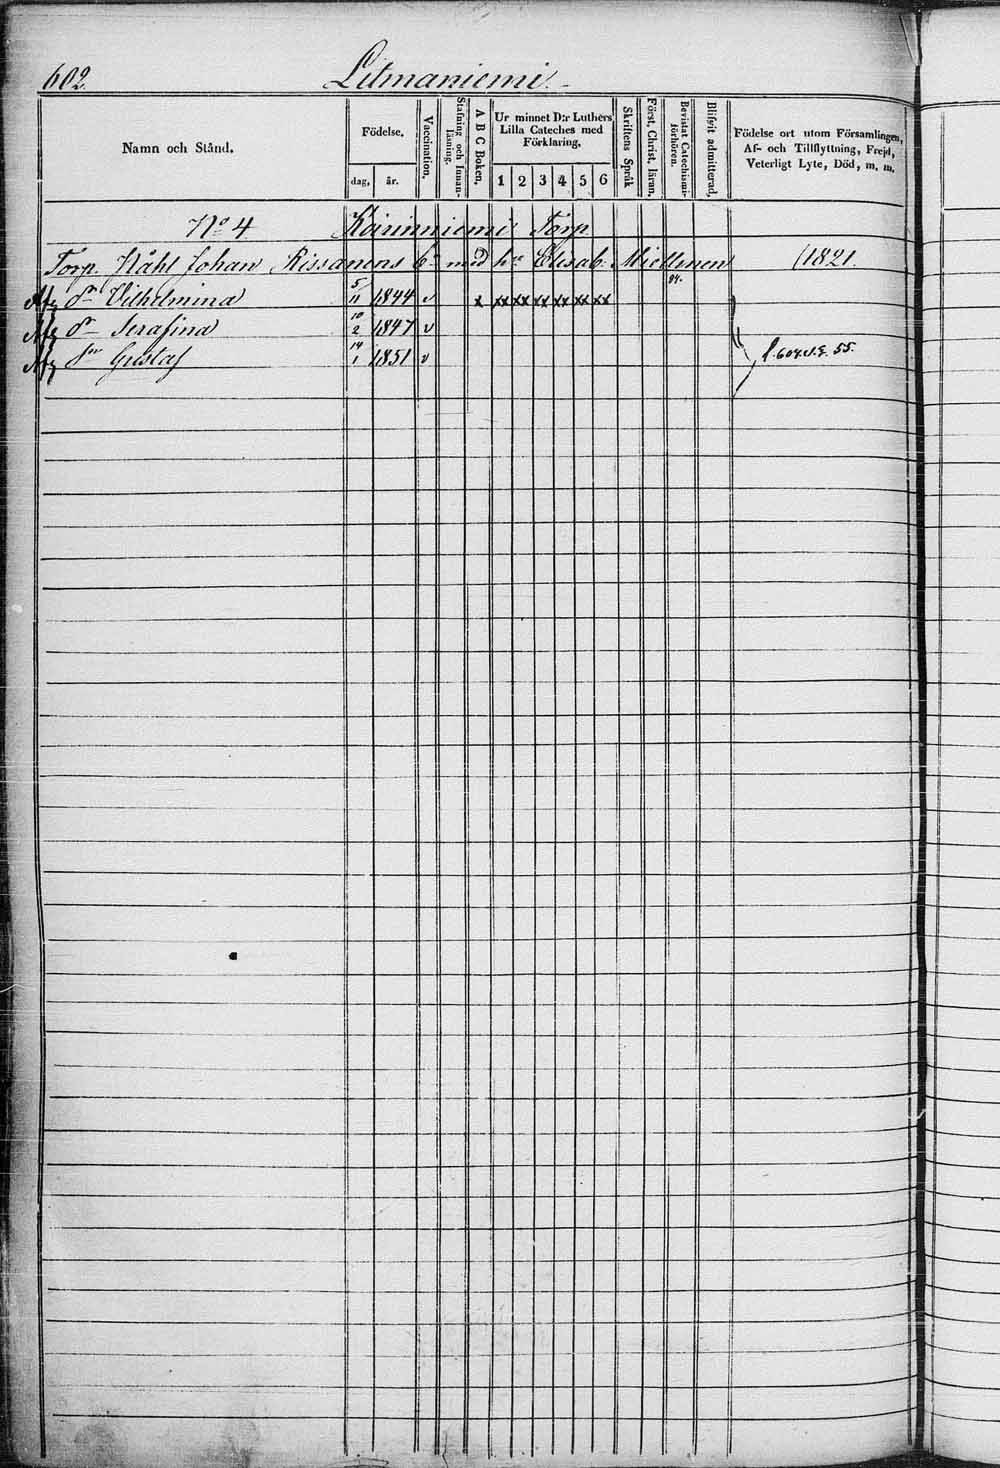 602.
Litmaniemi.
Namn och Stånd.
Födelse.
dag, år.
Vaccination.
Stafning och Innanläsning.
A B C Boken.
Ur minnet D:r Luthers Lilla Cateches med Förklaring.
1 2 3 4 5 6
Skriftens Språk
Först. Christ. läran.
Bevistat Catechismiförhören.
Blifvit admitterad.
Födelse ort utom Församlingen, Af- och Tillflyttning, Frejd, Veterligt Lyte, Död, m. m.
No 4 Torp
Torp. Påhl Johan Rissanens bn med hu Elisab. Miettinen (1821.
dr Vilhelmina 5/11 1844 v x xx xx xx xx xx xx
dr Serafina 10/2 1847 v
sn Gustaf 14/1 1851 v 55.